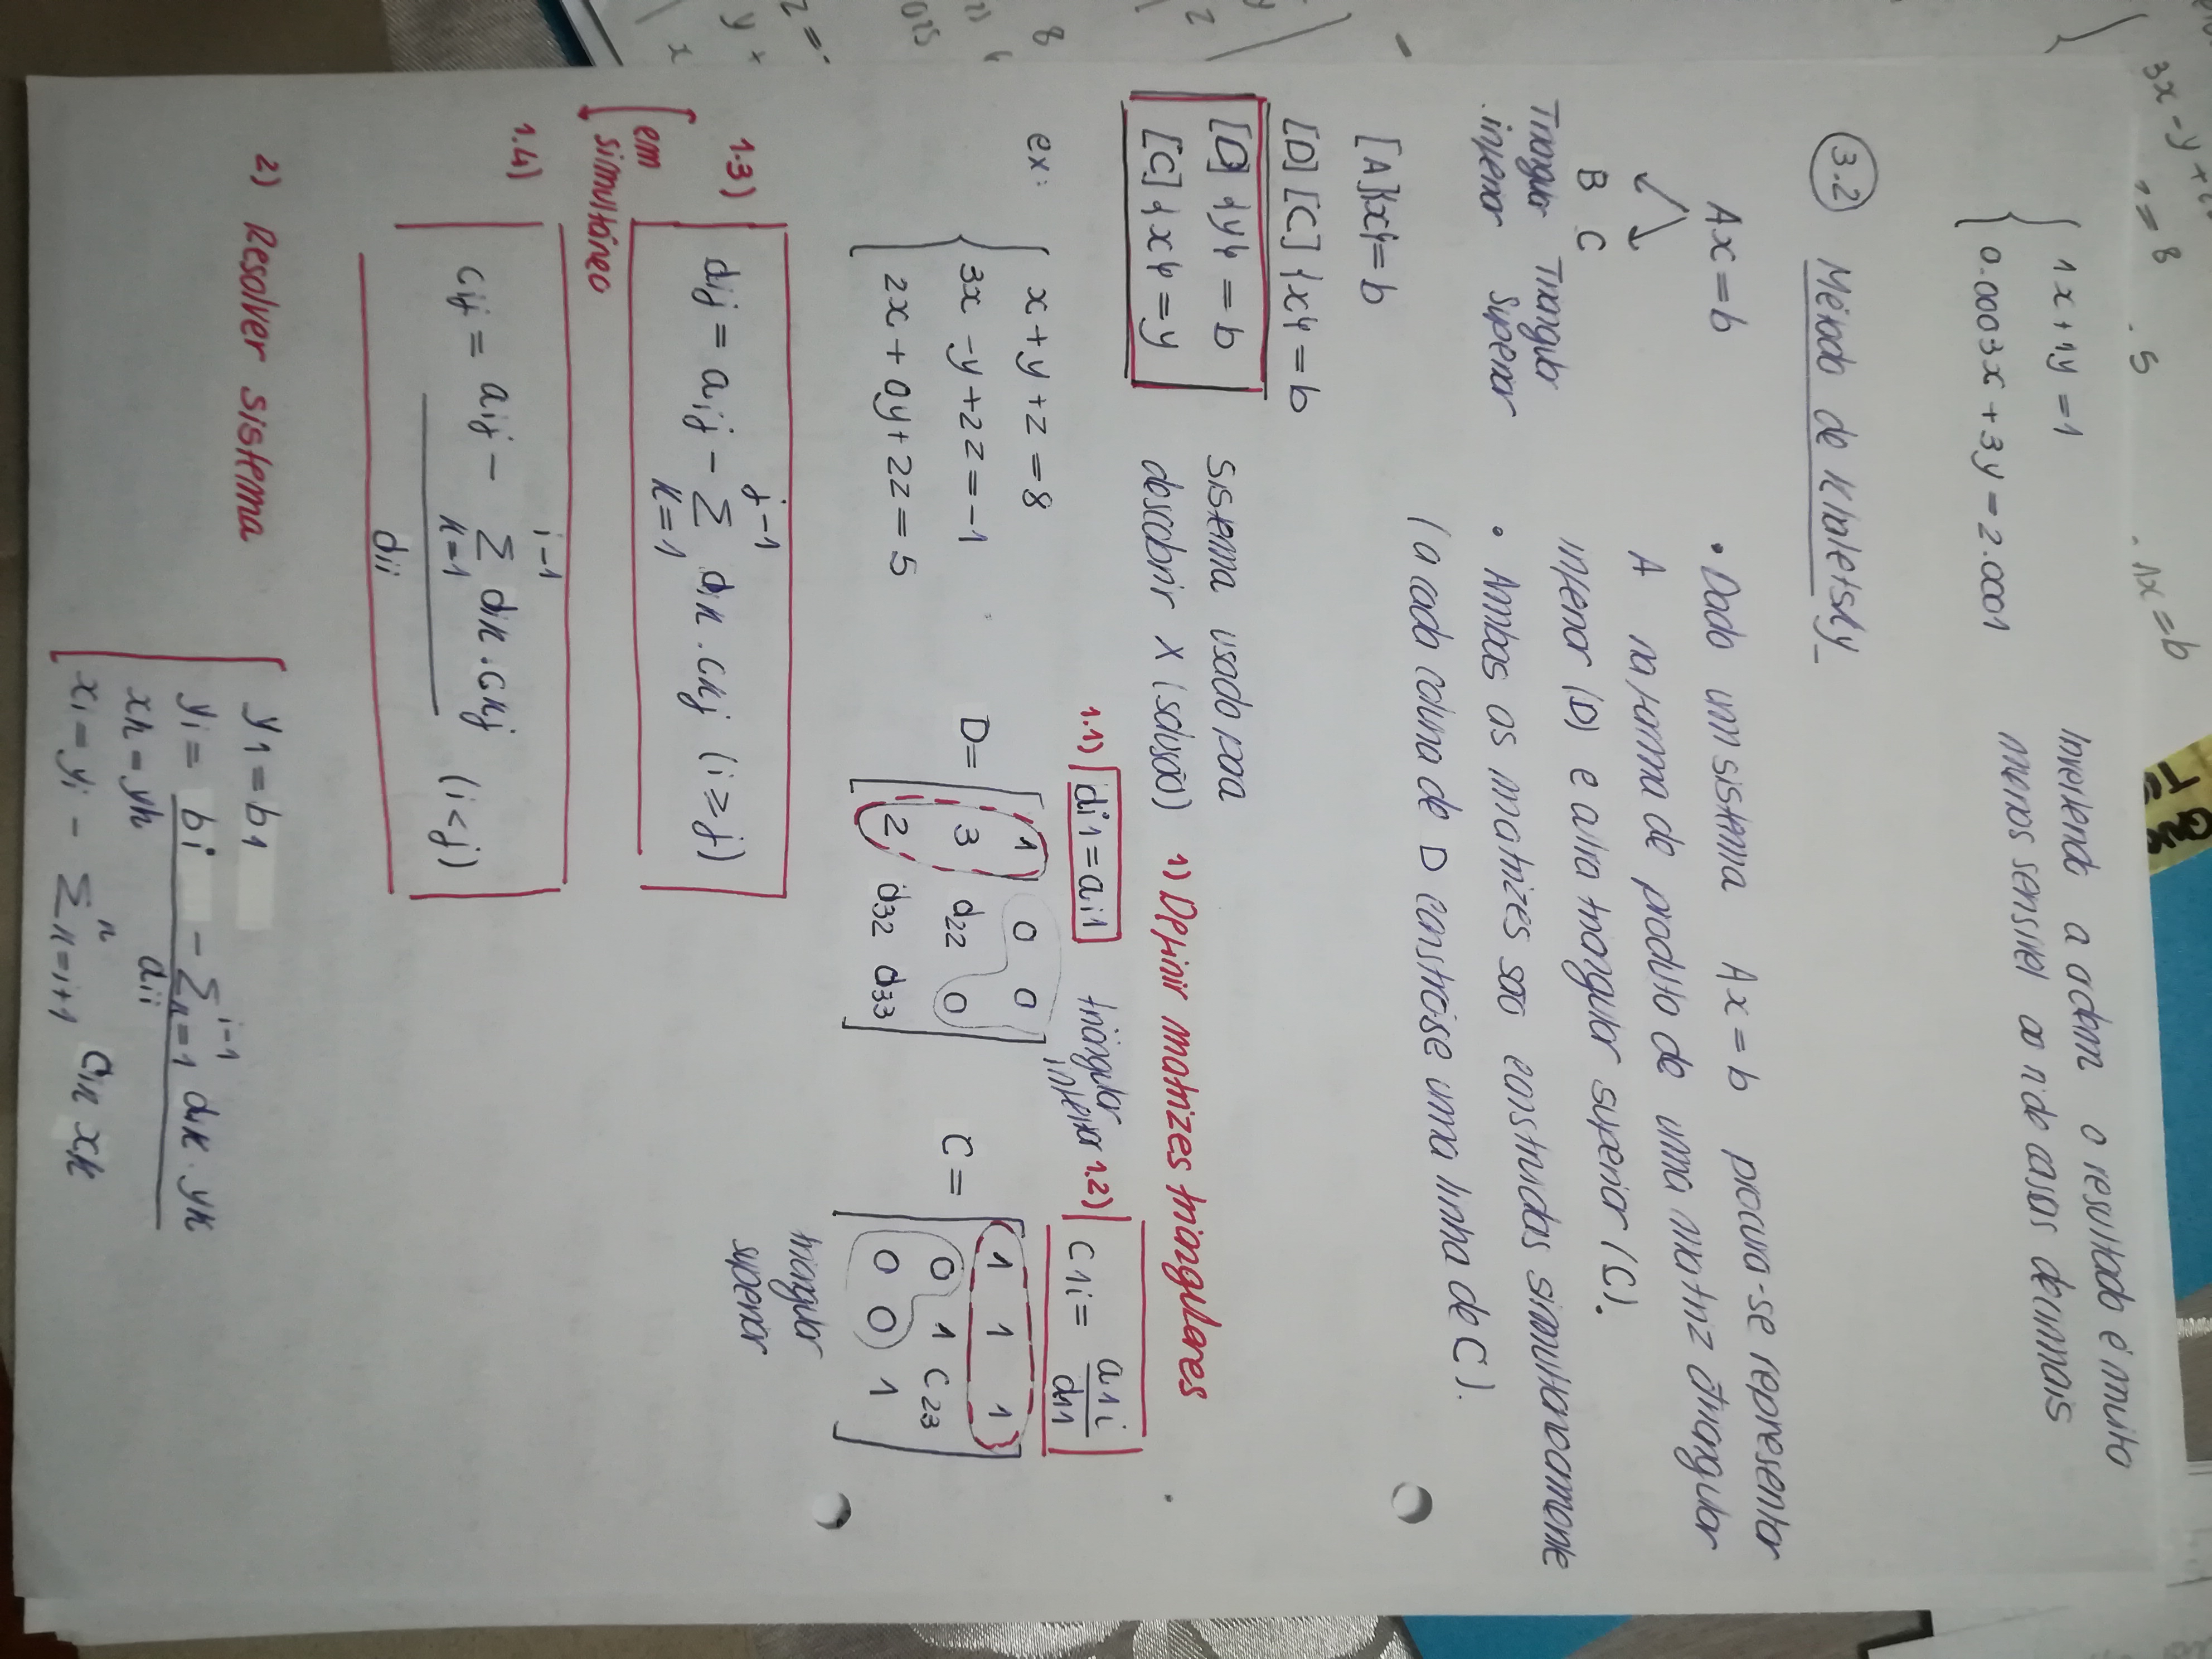 3x-y+
= 8
. 5
. Ax=b
QUA
TU
1x+1y=1
0.0003x+3y=2.0001
Invertendo a ordem o resultado é muito
menos sensível ao nº de casas decimais
3.2 Método de Khaletsky
Ax=b
B C
Triangular Triangular
inferior Superior
• Dado um sistema Ax=b procura-se representar
A na forma de produto de uma matriz triangular
inferior (D) e outra triangular superior (C).
• Ambas as matrizes são construídas simultaneamente
(a cada coluna de D constrói-se uma linha de C).
[A]{x}=b
[D][C]{x}=b
[D]{y}=b
[C]{x}=y
sistema usado para
descobrir X (solusão)
1) Definir matrizes triangulares
1.1) di1=ai1 triângular inferior
1.2) c1i= a1i/d11
ex:
x+y+z=8
3x-y+2z=-1
2x+0y+2z=5
D=
1 0 0
3 d22 0
2 d32 d33
C=
1 1 1
0 1 C23
0 0 1
triangular
superior
1.3) dij = aij - Σ_{k=1}^{j-1} dik.ckj (i≥j)
em
simultáneo
1.4) cij = (aij - Σ_{k=1}^{i-1} dik.ckj)/dii (i<j)
2) Resolver sistema
y1=b1
yi= (bi - Σ_{k=1}^{i-1} dik.yk)/dii
xn=yn
xi=yi - Σ_{k=i+1}^{n} Cik xk